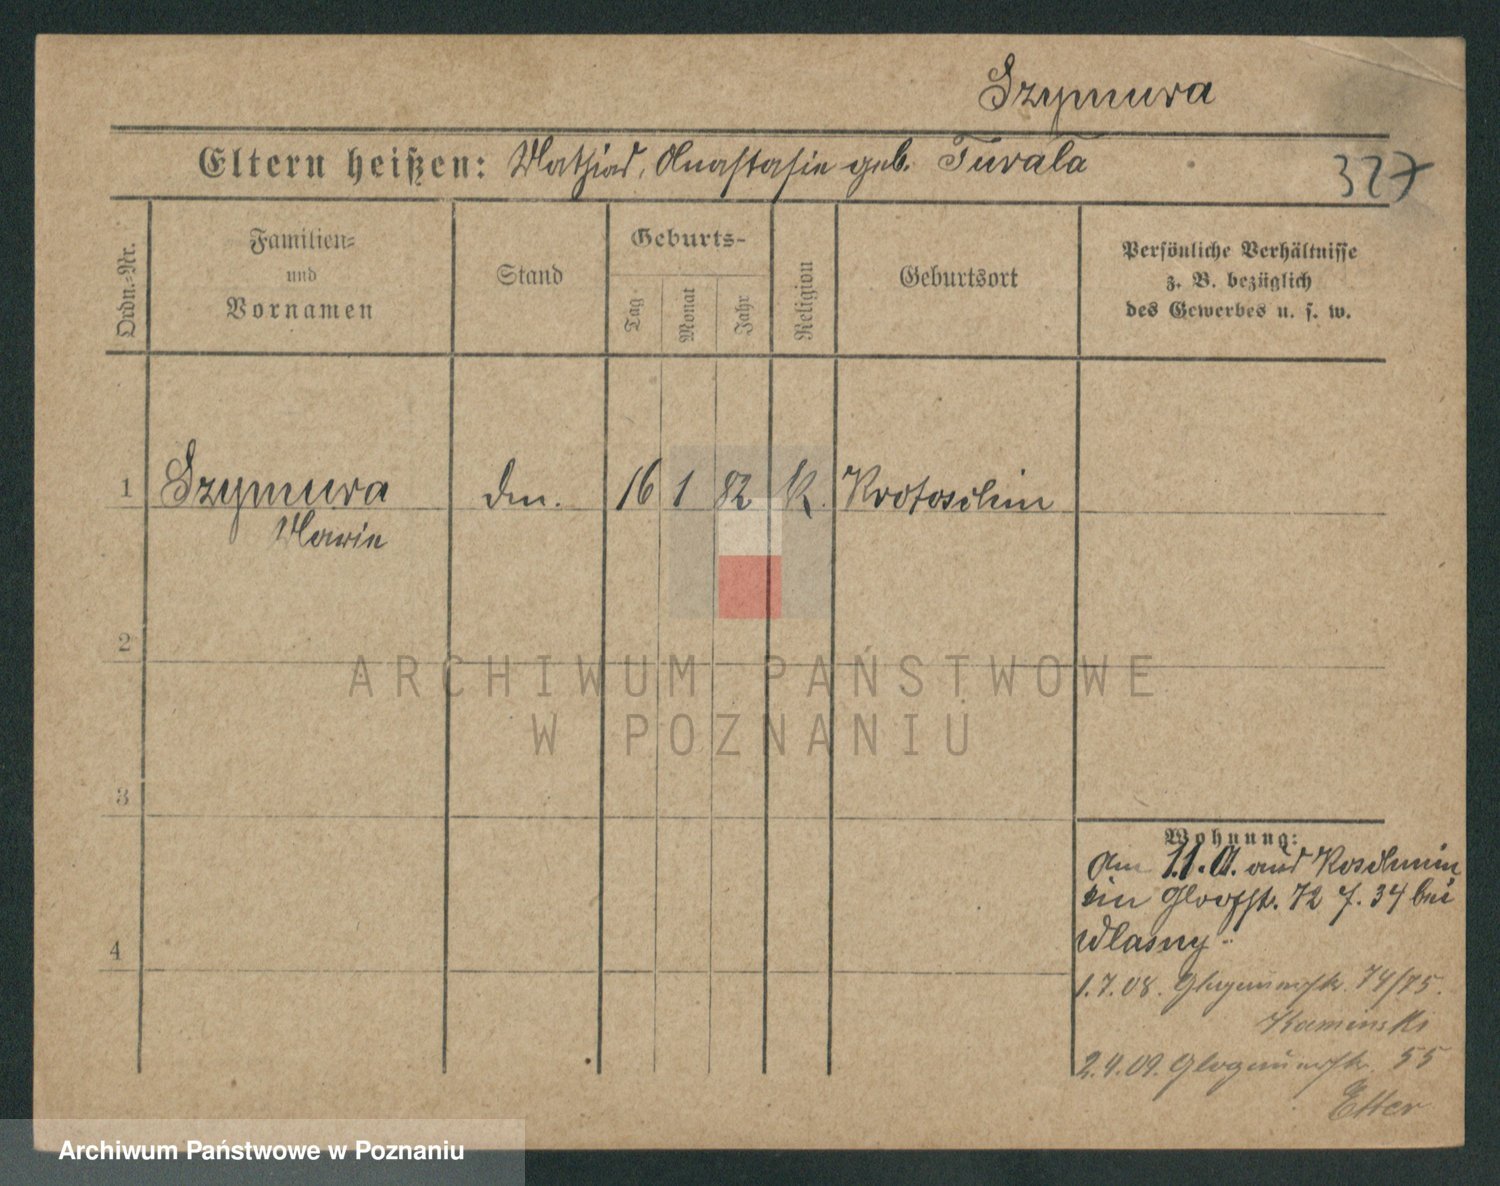 Szymura
Eltern heißen: Mathias, Anastasie geb. Turala
327
Ordn.-Nr.
Familien-
und
Vornamen
Stand
Geburts-
Tag
Monat
Jahr
Religion
Geburtsort
Persönliche Verhältnisse
z. B. bezüglich
des Gewerbes u. s. w.
1 Szymura dm. 16 1 82 K. Krotoschin
Marie
2
ARCHIWUM PAŃSTWOWE
W POZNANIU
3
Wohnung:
Am aus Koschmin
72 34 bei
Wlasny
4
1.7.08. 74/75.
Kaminski
2.4.09. Glogauerstr. 55
Etter
Archiwum Państwowe w Poznaniu